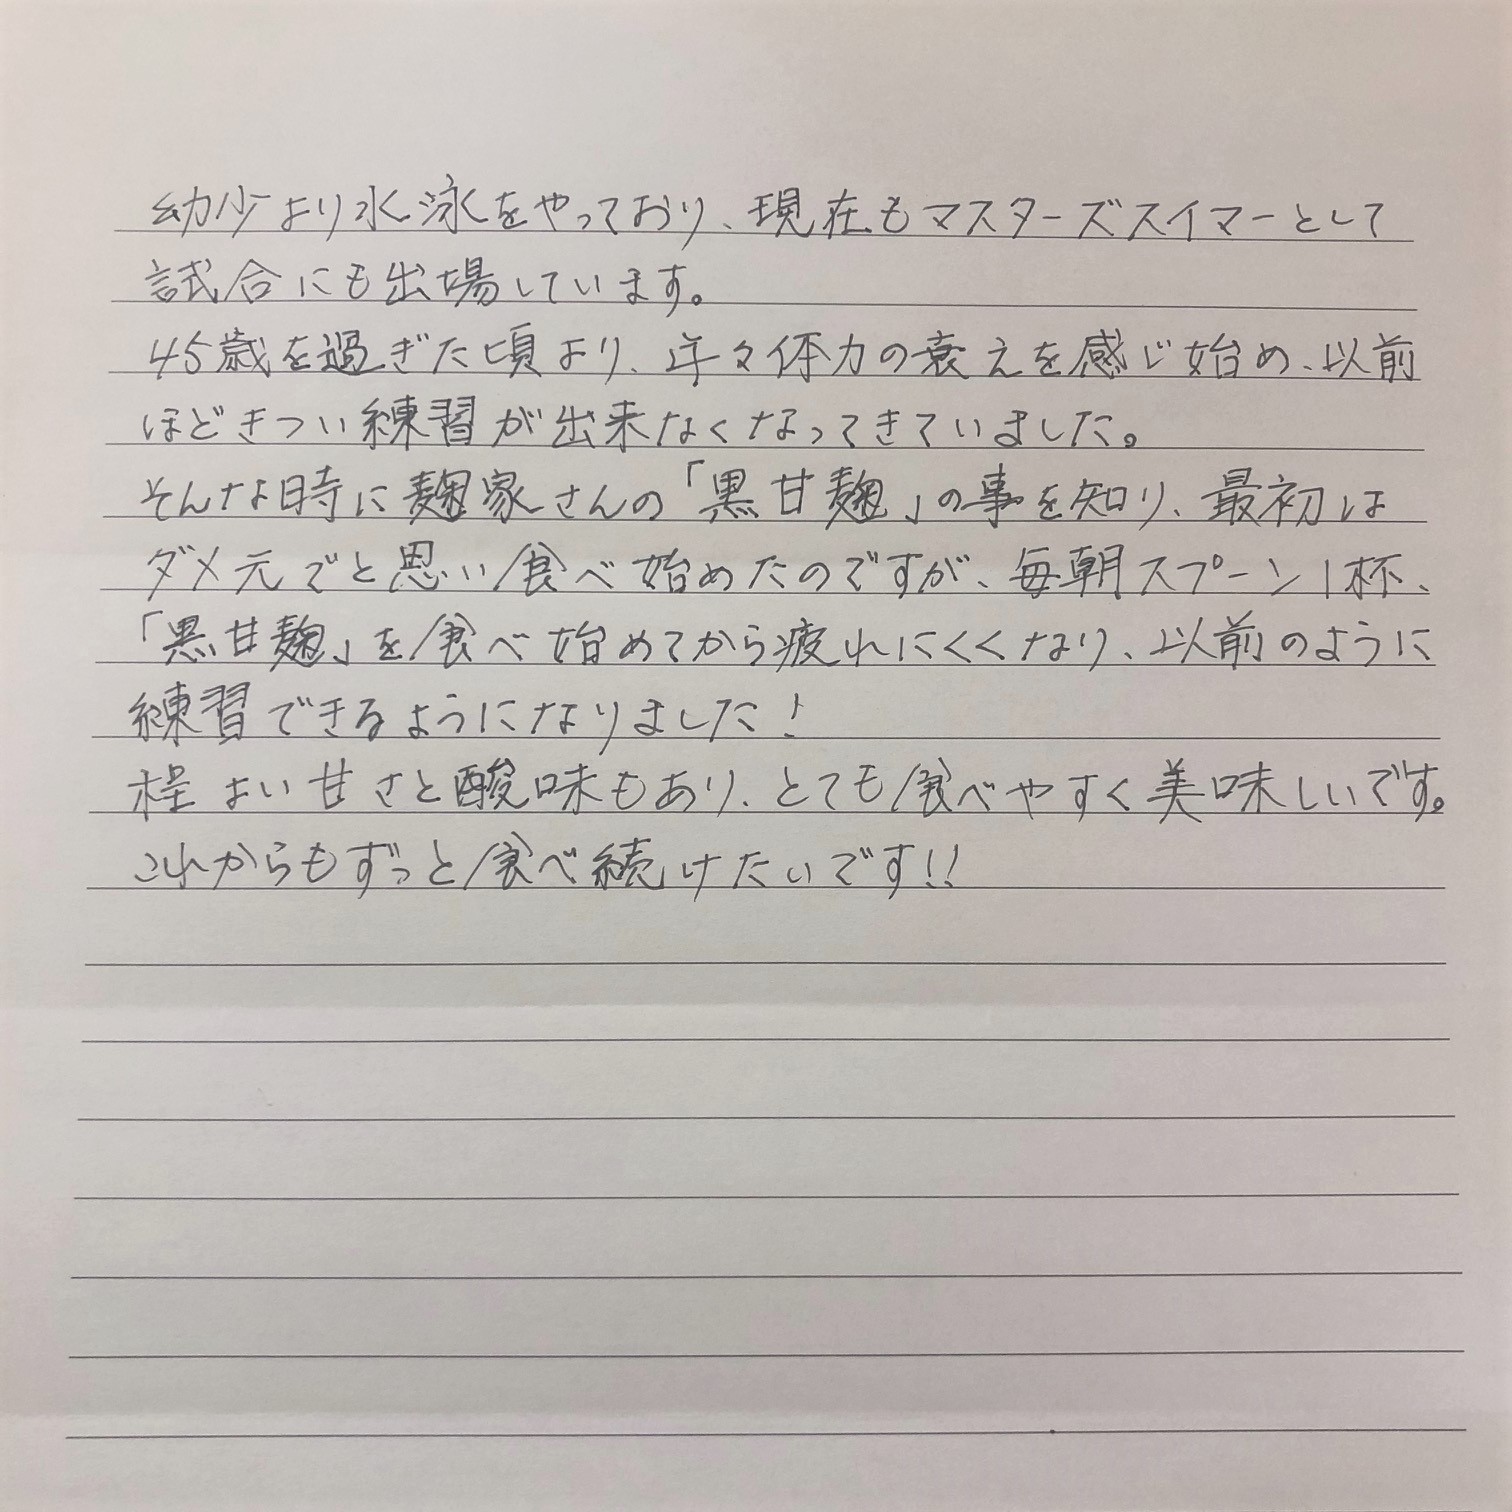 幼少より水泳をやっており、現在もマスターズスイマーとして
試合にも出場しています。
45歳を過ぎた頃より、年々体力の衰えを感じ始め、以前
ほどきつい練習が出来なくなってきていました。
そんな時に麹家さんの「黒甘麹」の事を知り、最初は
ダメ元でと思い食べ始めたのですが、毎朝スプーン1杯、
「黒甘麹」を食べ始めてから疲れにくくなり、以前のように
練習できるようになりました!
程よい甘さと酸味もあり、とても食べやすく美味しいです。
これからもずっと食べ続けたいです!!